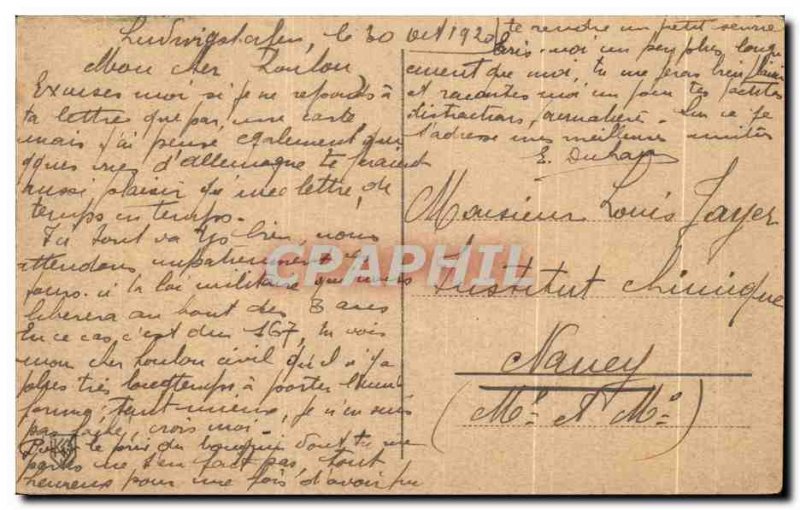 Ludwigshafen, le 30 Oct 1920
Mon cher Loulou
Excuses moi si je ne réponds à
ta lettre que par une carte
mais j'ai pensé également que
ques vues d'allemagne te feraient
aussi plaisir qu'une lettre, de
temps en temps.
Ici tout va très bien, nous
attendons impatiemment
jours. à la loi militaire qui nous
libèrera au bout des 3 ans
En ce cas c'est du 167, tu vois
mon cher Loulou civil qu'il n'y a
plus très longtemps à porter l'uni
forme; tant mieux, je n'en suis
pas fâché, crois moi.
Pour le prix du bouquin dont tu me
parles ne t'en fait pas, tout
heureux pour une fois d'avoir pu
te rendre un petit service
Écris-moi un peu plus longu
ement que moi, tu me feras bien plaisir
et racontes moi un peu tes petites
distractions, Sur ce je
t'adresse mes meilleures amitiés
E. Duhap
Monsieur Louis Jayer
Institut chimique
Nancy
(Mthe & Mlle)
CPAPHIL